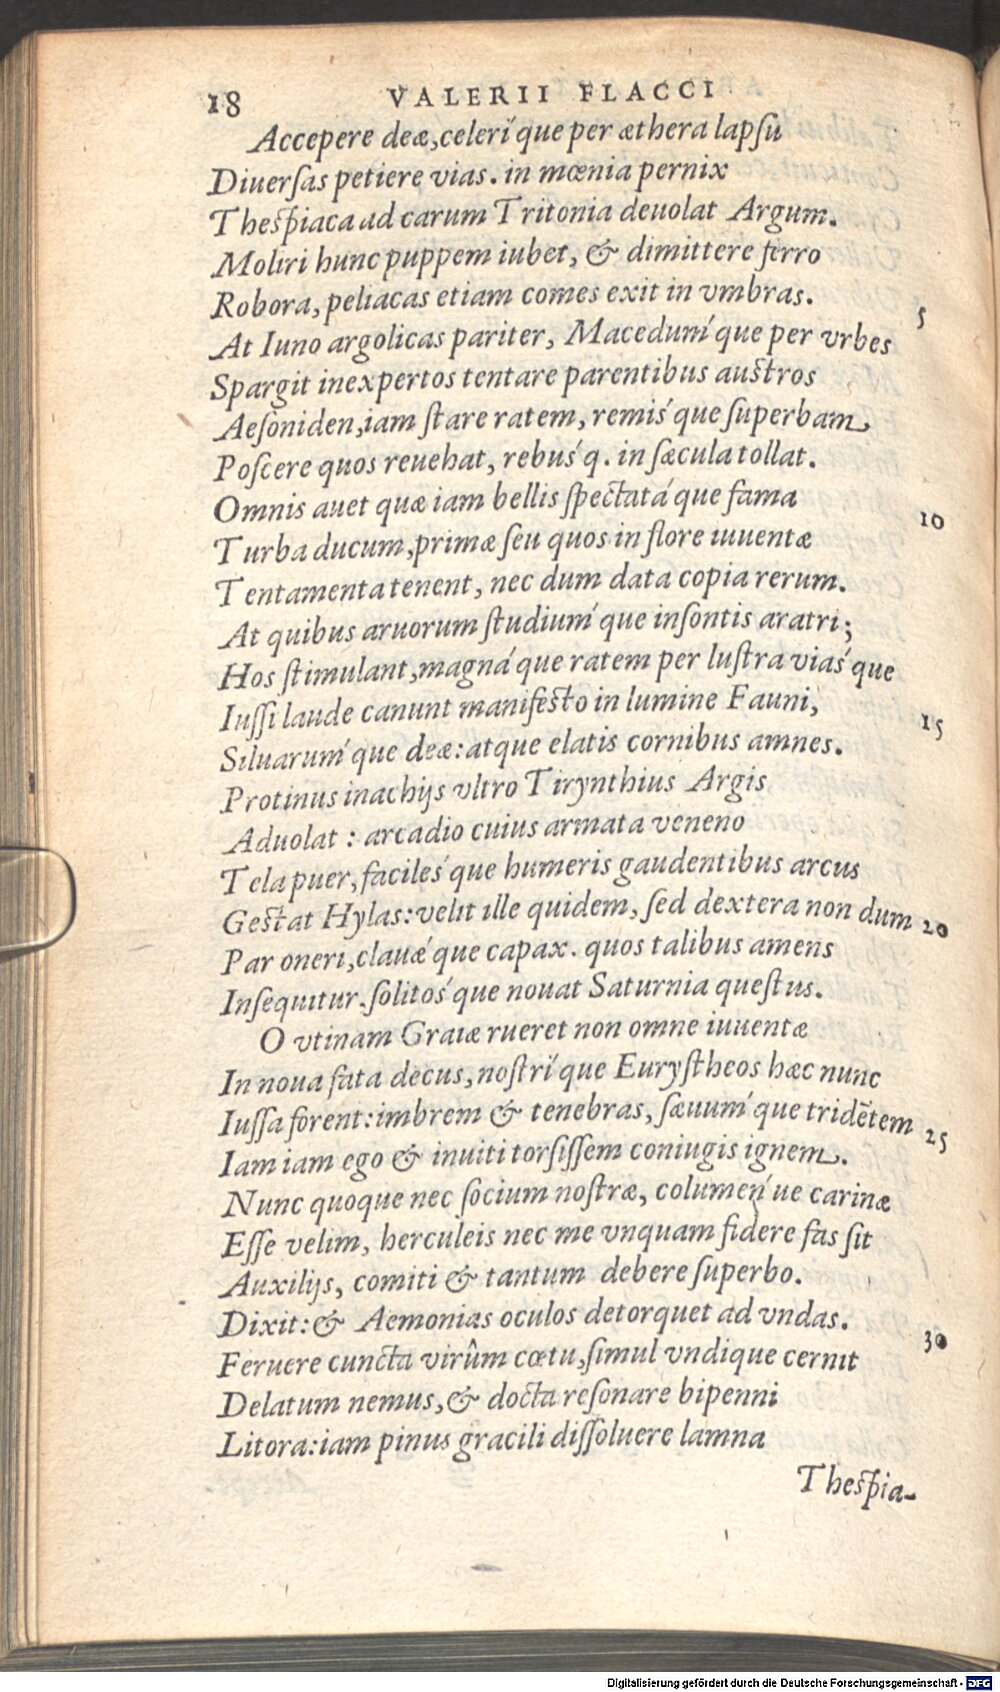 18 VALERII FLACCI
Accepere deæ, celeri´que per æthera lapsu
Diuersas petiere vias. in mœnia pernix
Thespiaca ad carum Tritonia deuolat Argum.
Moliri hunc puppem iubet, & dimittere ferro
Robora, peliacas etiam comes exit in vmbras.
5
At Iuno argolicas pariter, Macedum´que per vrbes
Spargit inexpertos tentare parentibus austros
Aesoniden, iam stare ratem, remis´que superbam
Poscere quos reuehat, rebus´q. in sæcula tollat.
Omnis auet quæ iam bellis spectata´que fama
10
Turba ducum, primæ seu quos in flore iuuentæ
Tentamenta tenent, nec dum data copia rerum.
At quibus aruorum studium´que insontis aratri;
Hos stimulant, magna´que ratem per lustra vias´que
Iussi laude canunt manifesto in lumine Fauni,
15
Siluarum´que deæ: atque elatis cornibus amnes.
Protinus inachijs vltro Tirynthius Argis
Aduolat: arcadio cuius armata veneno
Tela puer, faciles´que humeris gaudentibus arcus
Gestat Hylas: velit ille quidem, sed dextera non dum
20
Par oneri, clauæ´que capax. quos talibus amens
Insequitur. solitos´que nouat Saturnia questus.
O vtinam Graiæ rueret non omne iuuentæ
In noua fata decus, nostri´que Eurystheos hæc nunc
Iussa forent: imbrem & tenebras, sæuum´que tridētem
25
Iam iam ego & inuiti torsissem coniugis ignem.
Nunc quoque nec socium nostræ, columen´ue carinæ
Esse velim, herculeis nec me vnquam fidere fas sit
Auxilijs, comiti & tantum debere superbo.
Dixit: & Aemonias oculos detorquet ad vndas.
30
Feruere cuncta virûm cœtu, simul vndique cernit
Delatum nemus, & docta resonare bipenni
Litora: iam pinus gracili dissoluere lamna
Thespia-
Digitalisierung gefördert durch die Deutsche Forschungsgemeinschaft - DFG